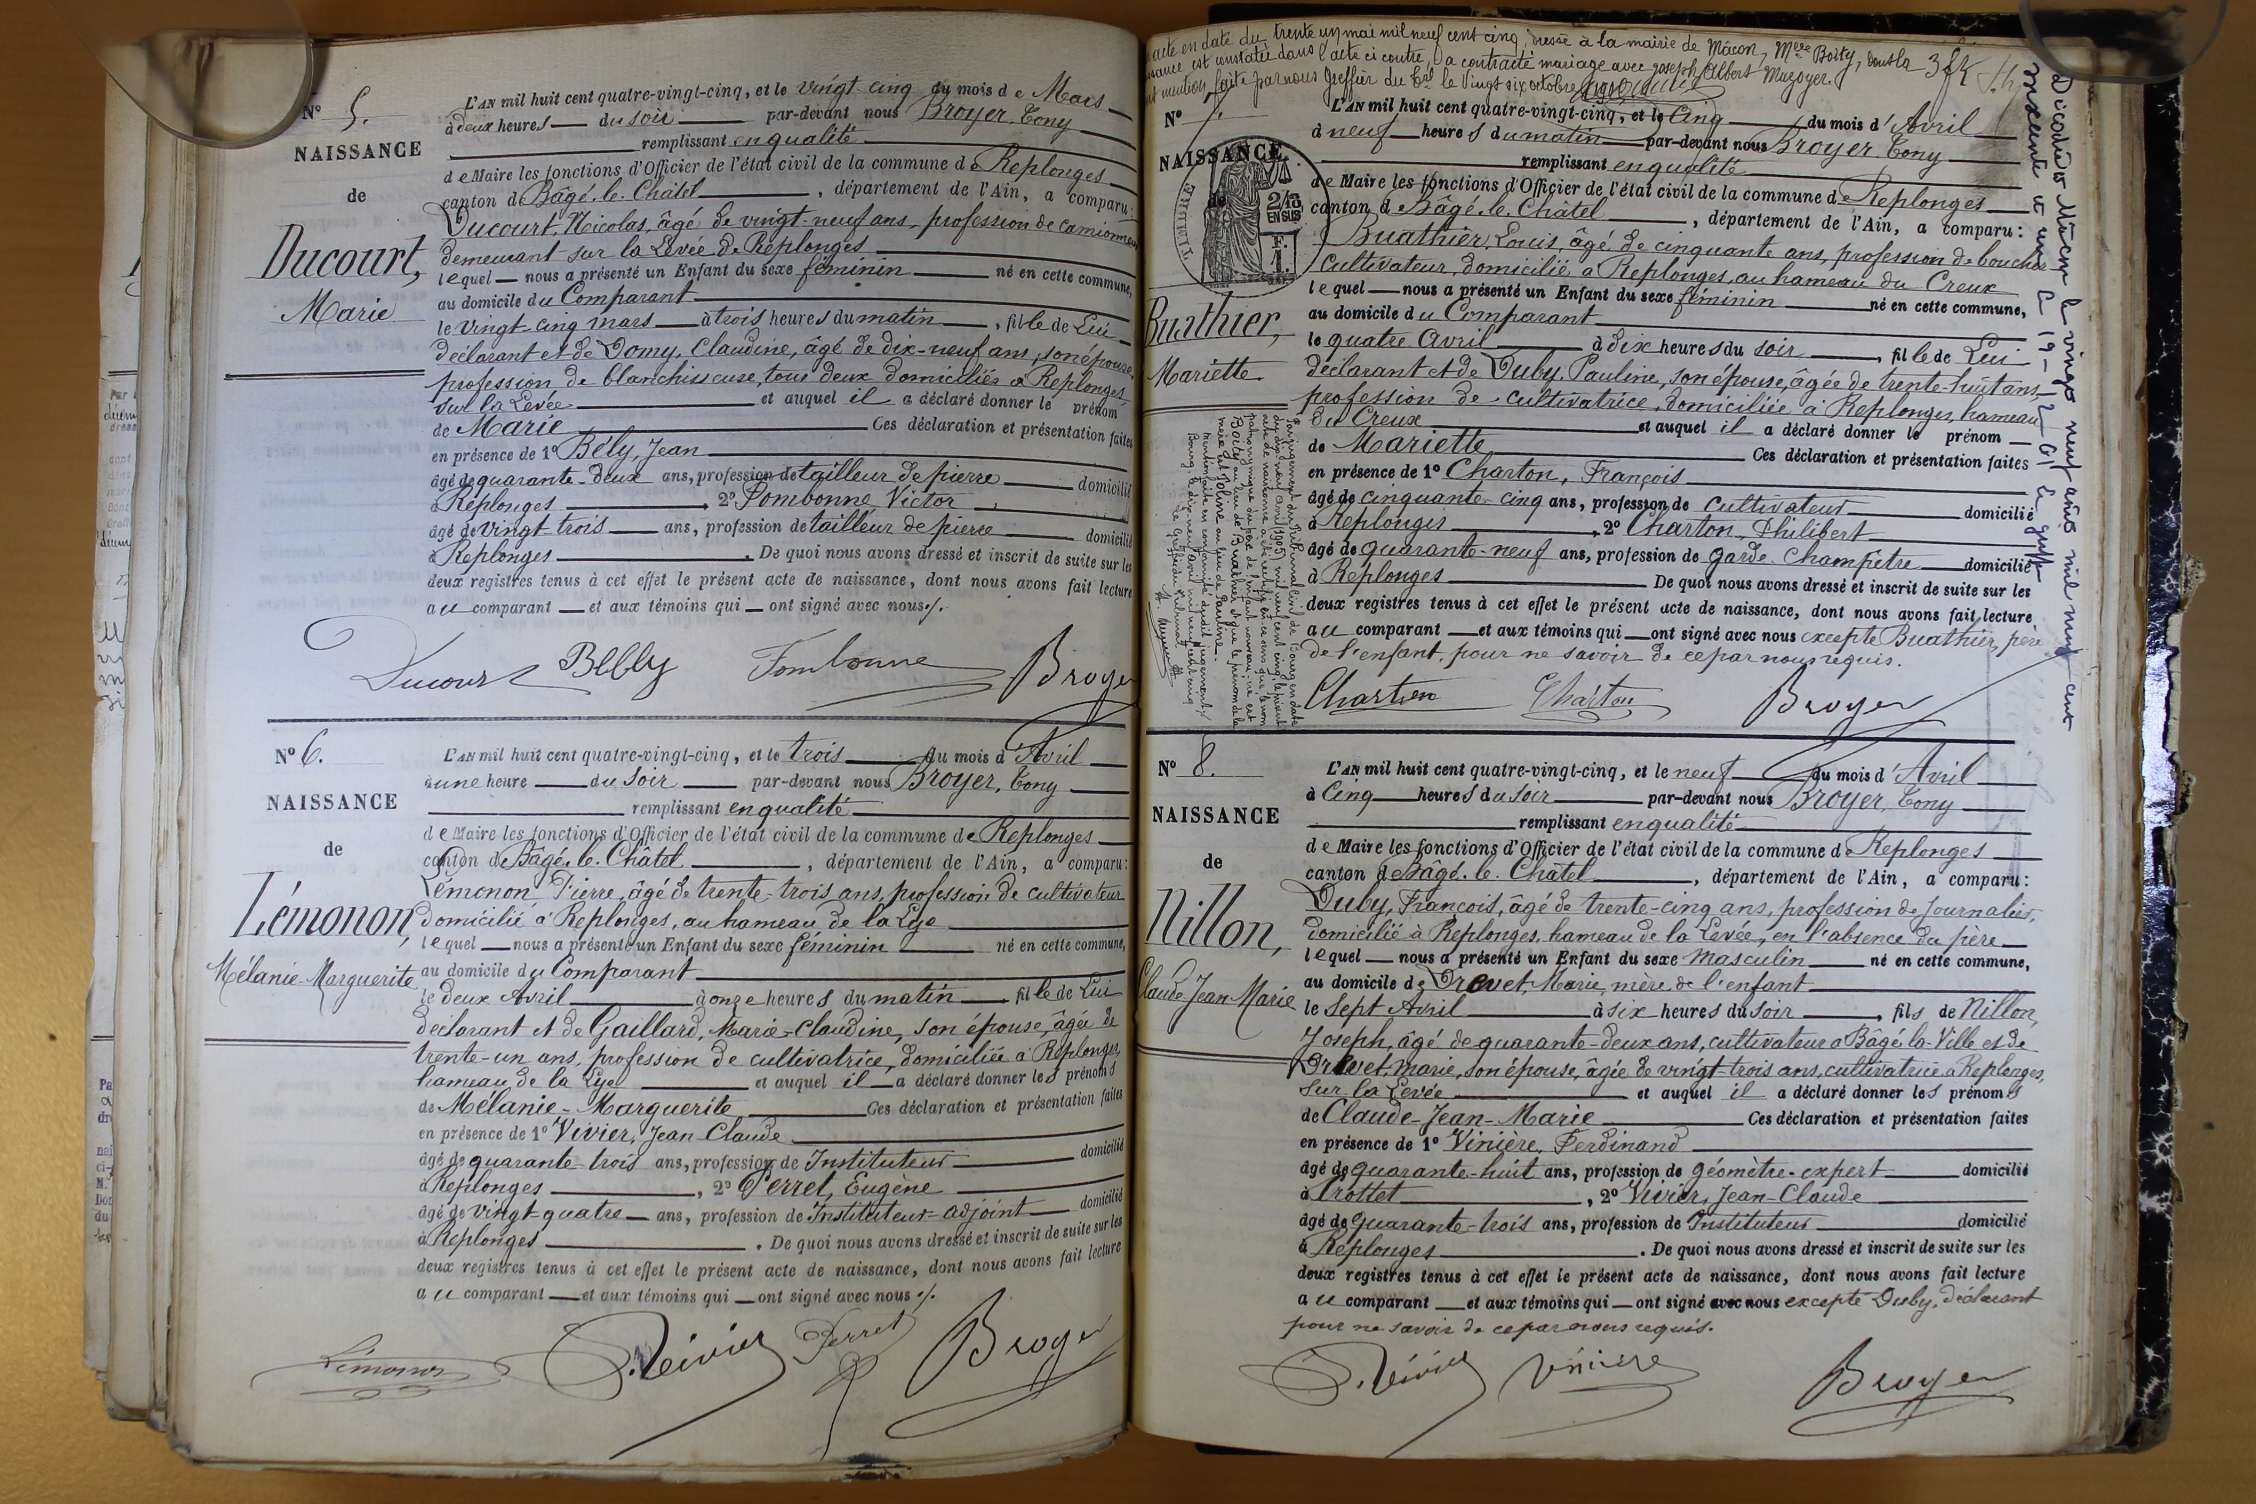 Nº 5.
NAISSANCE
de
Ducourt,
Marie
L'AN mil huit cent quatre-vingt-cinq, et le vingt-cinq du mois de Mars
à deux heures du soir par-devant nous Broyer, Tony
remplissant en qualité
de Maire les fonctions d'Officier de l'état civil de la commune de Replonges
canton de Bâgé-le-Châtel, département de l'Ain, a comparu:
Ducourt Nicolas, âgé de vingt-neuf ans, profession de camionneur
demeurant sur la Levée de Replonges
lequel nous a présenté un Enfant du sexe féminin né en cette commune,
au domicile du Comparant
le vingt-cinq mars à trois heures du matin, fille de Lui
déclarant et de Domy, Claudine, âgé de dix-neuf ans, son épouse,
profession de blanchisseuse, tous deux domiciliés à Replonges
sur la Levée et auquel il a déclaré donner le prénom
de Marie Ces déclaration et présentation faites
en présence de 1º Bély, Jean
âgé de quarante-deux ans, profession de tailleur de pierre domicilié
à Replonges, 2º Fombonne Victor
âgé de vingt trois ans, profession de tailleur de pierre domicilié
à Replonges. De quoi nous avons dressé et inscrit de suite sur les
deux registres tenus à cet effet le présent acte de naissance, dont nous avons fait lecture
au comparant et aux témoins qui ont signé avec nous ./.
Ducourt Belly Fombonne Broyer
Nº 6.
NAISSANCE
de
Lémonon,
Mélanie-Marguerite
L'AN mil huit cent quatre-vingt-cinq, et le trois du mois d'Avril
à une heure du soir par-devant nous Broyer, Tony
remplissant en qualité
de Maire les fonctions d'Officier de l'état civil de la commune de Replonges
canton de Bâgé-le-Châtel, département de l'Ain, a comparu:
Lémonon Pierre, âgé de trente-trois ans, profession de cultivateur
domicilié à Replonges, au hameau de la Lye
lequel nous a présenté un Enfant du sexe féminin né en cette commune,
au domicile du Comparant
le deux Avril à onze heures du matin, fille de Lui
déclarant et de Gaillard, Marie-Claudine, son épouse, âgée de
trente-un ans, profession de cultivatrice, domiciliée à Replonges,
hameau de la Lye et auquel il a déclaré donner les prénoms
de Mélanie-Marguerite Ces déclaration et présentation faites
en présence de 1º Vivier, Jean-Claude
âgé de quarante-trois ans, profession de Instituteur domicilié
à Replonges, 2º Perret, Eugène
âgé de vingt-quatre ans, profession de Instituteur-adjoint domicilié
à Replonges. De quoi nous avons dressé et inscrit de suite sur les
deux registres tenus à cet effet le présent acte de naissance, dont nous avons fait lecture
au comparant et aux témoins qui ont signé avec nous ./.
Lémonon J. Vivier Perret Broyer
acte en date du trente un mai mil neuf cent cinq, dressé à la mairie de Mâcon, Mlle Boity, dont la
naissance est constatée dans l'acte ci contre, a contracté mariage avec Joseph Albert Mazoyer.
mention faite par nous Greffier du Trl le vingt six octobre
Nº 7.
NAISSANCE
de
TIMBRE
2/10 EN SUS
F.
1.
Buathier,
Mariette
L'AN mil huit cent quatre-vingt-cinq, et le Cinq du mois d'Avril
à neuf heures du matin par-devant nous Broyer Tony
remplissant en qualité
de Maire les fonctions d'Officier de l'état civil de la commune de Replonges
canton de Bâgé-le-Châtel, département de l'Ain, a comparu:
Buathier, Louis, âgé de cinquante ans, profession de boucher
Cultivateur, domicilié à Replonges, au hameau du Creux
lequel nous a présenté un Enfant du sexe féminin né en cette commune,
au domicile du Comparant
le quatre Avril à dix heures du soir, fille de Lui
déclarant et de Duby, Pauline, son épouse, âgée de trente-huit ans,
profession de cultivatrice, domiciliée à Replonges, hameau
du Creux et auquel il a déclaré donner le prénom
de Mariette Ces déclaration et présentation faites
en présence de 1º Charton, François
âgé de cinquante-cinq ans, profession de cultivateur domicilié
à Replonges, 2º Charton, Philibert
âgé de quarante-neuf ans, profession de garde-Champêtre domicilié
à Replonges De quoi nous avons dressé et inscrit de suite sur les
deux registres tenus à cet effet le présent acte de naissance, dont nous avons fait lecture
au comparant et aux témoins qui ont signé avec nous excepté Buathier, père
de l'enfant, pour ne savoir de ce par nous requis.
Charton Charton Broyer
Décédée Mâcon le vingt neuf août mil neuf cent
soixante et un
Nº 8.
NAISSANCE
de
Nillon,
Claude-Jean-Marie
L'AN mil huit cent quatre-vingt-cinq, et le neuf du mois d'Avril
à Cinq heures du soir par-devant nous Broyer, Tony
remplissant en qualité
de Maire les fonctions d'Officier de l'état civil de la commune de Replonges
canton de Bâgé-le-Châtel, département de l'Ain, a comparu:
Duby, François, âgé de trente-cinq ans, profession de Journalier,
domicilié à Replonges, hameau de la Levée, en l'absence du père
lequel nous a présenté un Enfant du sexe masculin né en cette commune,
au domicile de Drevet, Marie, mère de l'enfant
le sept Avril à six heures du soir, fils de Nillon,
Joseph, âgé de quarante-deux ans, cultivateur à Bâgé-la-Ville et de
Drevet, Marie, son épouse, âgée de vingt-trois ans, cultivatrice à Replonges,
sur la Levée et auquel il a déclaré donner les prénoms
de Claude-Jean-Marie Ces déclaration et présentation faites
en présence de 1º Vinière, Ferdinand
âgé de quarante-huit ans, profession de géomètre-expert domicilié
à Crottet, 2º Vivier, Jean-Claude
âgé de quarante-trois ans, profession de Instituteur domicilié
à Replonges. De quoi nous avons dressé et inscrit de suite sur les
deux registres tenus à cet effet le présent acte de naissance, dont nous avons fait lecture
au comparant et aux témoins qui ont signé avec nous excepté Duby, déclarant
pour ne savoir de ce par nous requis.
J. Vivier Vinière Broyer